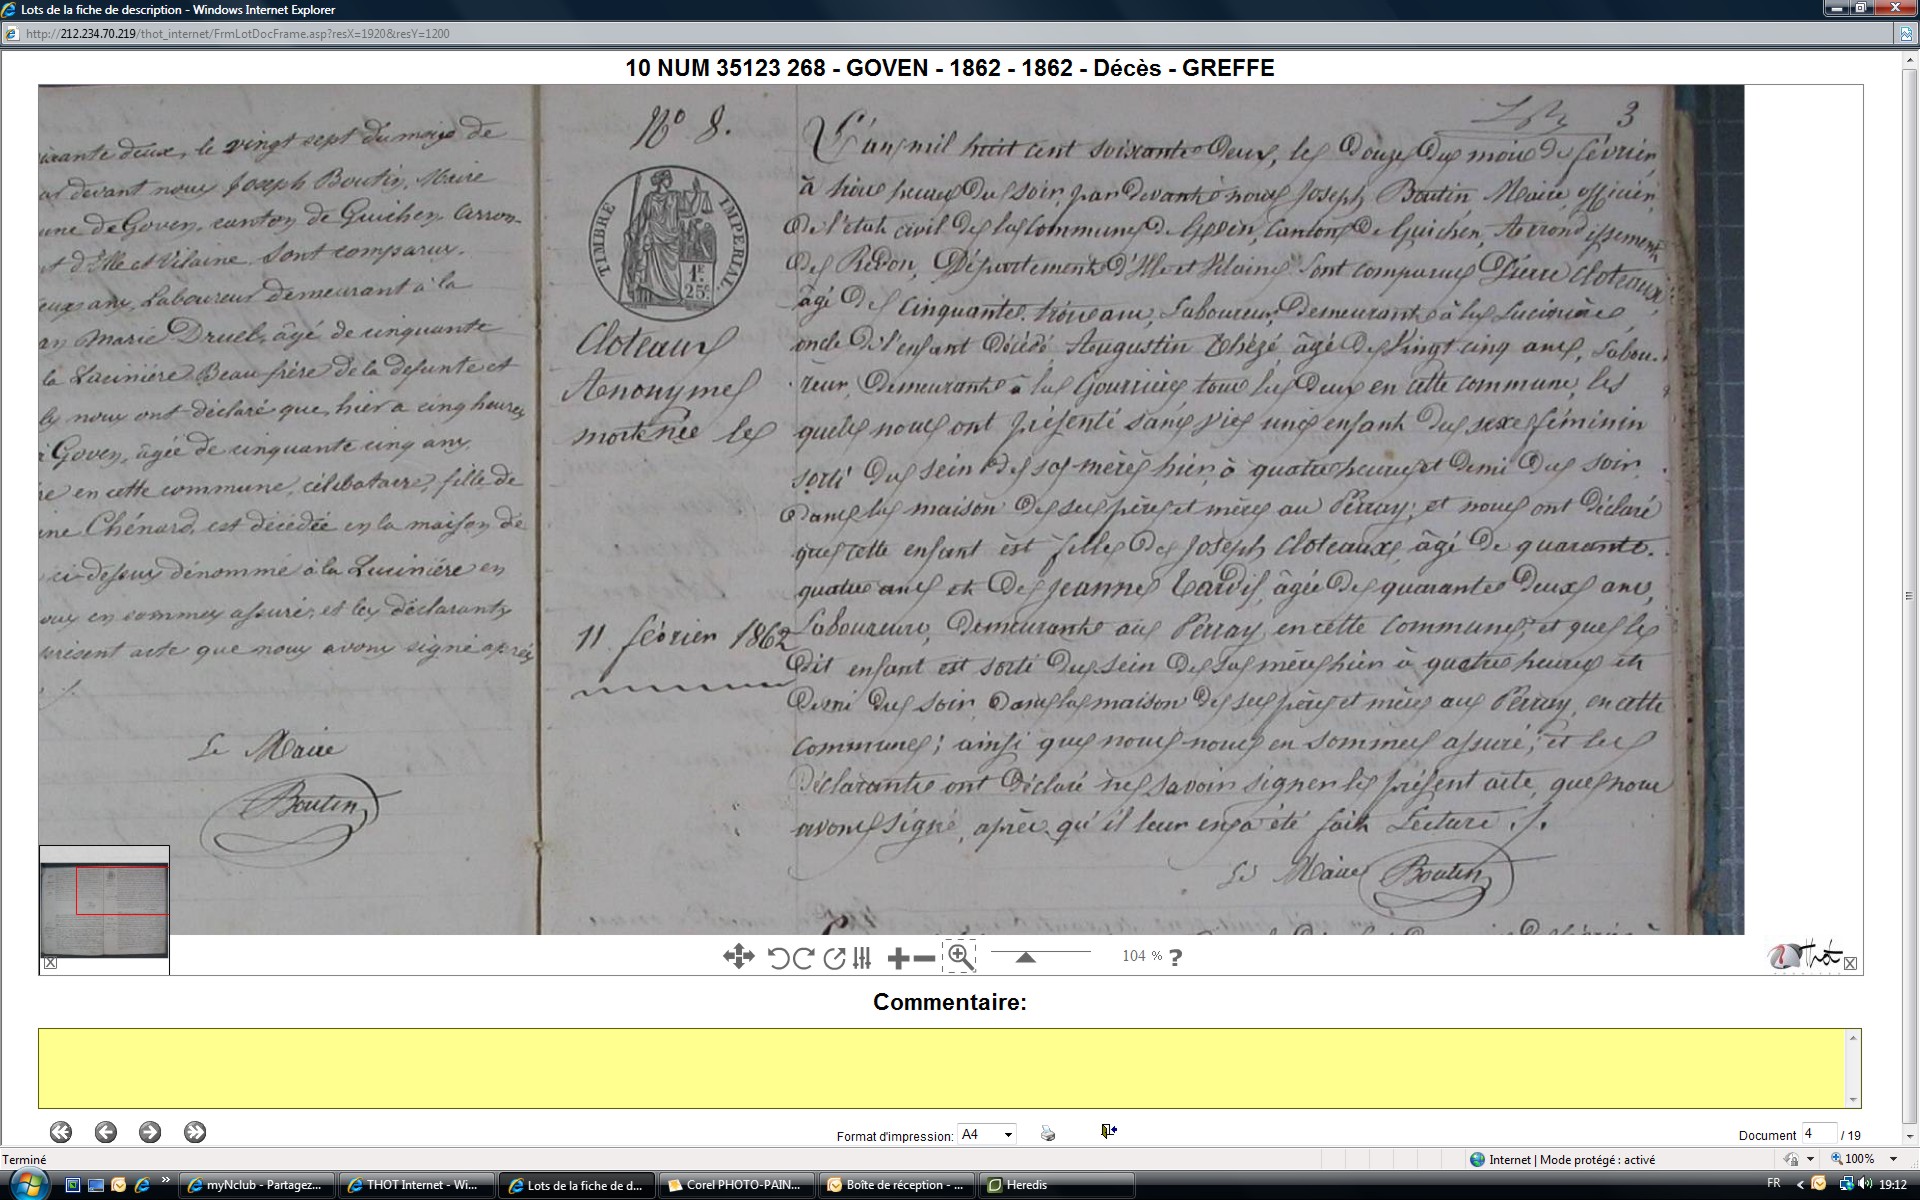 Lots de la fiche de description - Windows Internet Explorer
http://212.234.70.219/thot_internet/FrmLotDocFrame.asp?resX=1920&resY=1200
10 NUM 35123 268 - GOVEN - 1862 - 1862 - Décès - GREFFE
ixante deux, le vingt sept du mois de
devant nous Joseph Boutin, Maire
une de Goven, canton de Guichen, Arron-
d'Ille et Vilaine. Sont comparus.
eux ans, Laboureur demeurant à la
Marie Druel, âgé de cinquante
la Lucinière Beau frère de la defunte et
nous ont déclaré que, hier a cinq heures
Goven, âgée de cinquante cinq ans,
re en cette commune, célibataire, fille de
ine Chénard, est décédée en la maison de
ci-dessous dénommé à la Lucinière en
ous en sommes assuré, et les déclarants
présent acte que nous avons signé après
Le Maire
Boutin
N° 8.
TIMBRE IMPERIAL
1F
25c
Cloteaux
Anonyme
mort née le
11 février 1862
3
L'an mil huit cent soixante deux, le douze du mois de février,
à trois heures du soir, par devant nous Joseph Boutin Maire, officier
de l'état civil de la Commune de Goven, Canton de Guichen, Arrondissement
de Redon, Département d'Ille et Vilaine Sont comparus Pierre Cloteaux
âgé de cinquante trois ans, Laboureur, Demeurant à la Lucinière,
oncle de l'enfant décédé, Augustin Thézé âgé de Vingt cinq ans, Labou-
reur, Demeurant à la Gourrière, tous les deux en cette commune, les
quels nous ont présenté sans vie une enfant du sexe féminin
sorti du sein de sa mère hier, à quatre heures et demi du soir
dans la maison de ses père et mère au Perray, et nous ont déclaré
que cette enfant est fille de Joseph Cloteaux, âgé de quarante-
quatre ans et de Jeanne Tardif, âgée de quarante deux ans,
Laboureurs, Demeurants au Perray, en cette Commune, et que le
dit enfant est sorti du sein de sa mère hier à quatre heures et
demi du soir, dans la maison de ses père et mère au Perray, en cette
commune; ainsi que nous nous en sommes assuré; et les
déclarants ont déclaré ne savoir signer le présent acte, que nous
avons signé, après qu'il leur en a été fait Lecture ./.
Le Maire Boutin
104 % ?
Thot
Commentaire:
Format d'impression: A4
Document 4 / 19
Terminé
Internet | Mode protégé : activé
100%
myNclub - Partagez...
THOT Internet - Wi...
Lots de la fiche de d...
Corel PHOTO-PAIN...
Boîte de réception - ...
Heredis
FR
19:12